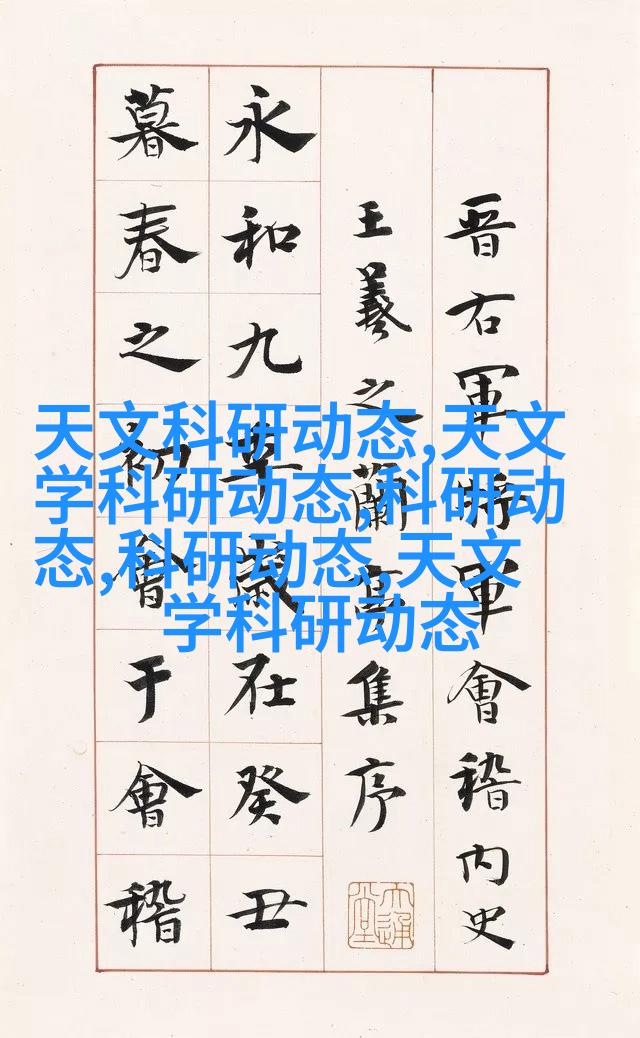 晋右軍將軍會稽内史
王羲之蘭亭集序
永和九年歲在癸丑
暮春之初會于會稽
天文科研动态,天文
学科研动态,科研动
态,科研动态,天文
学科研动态